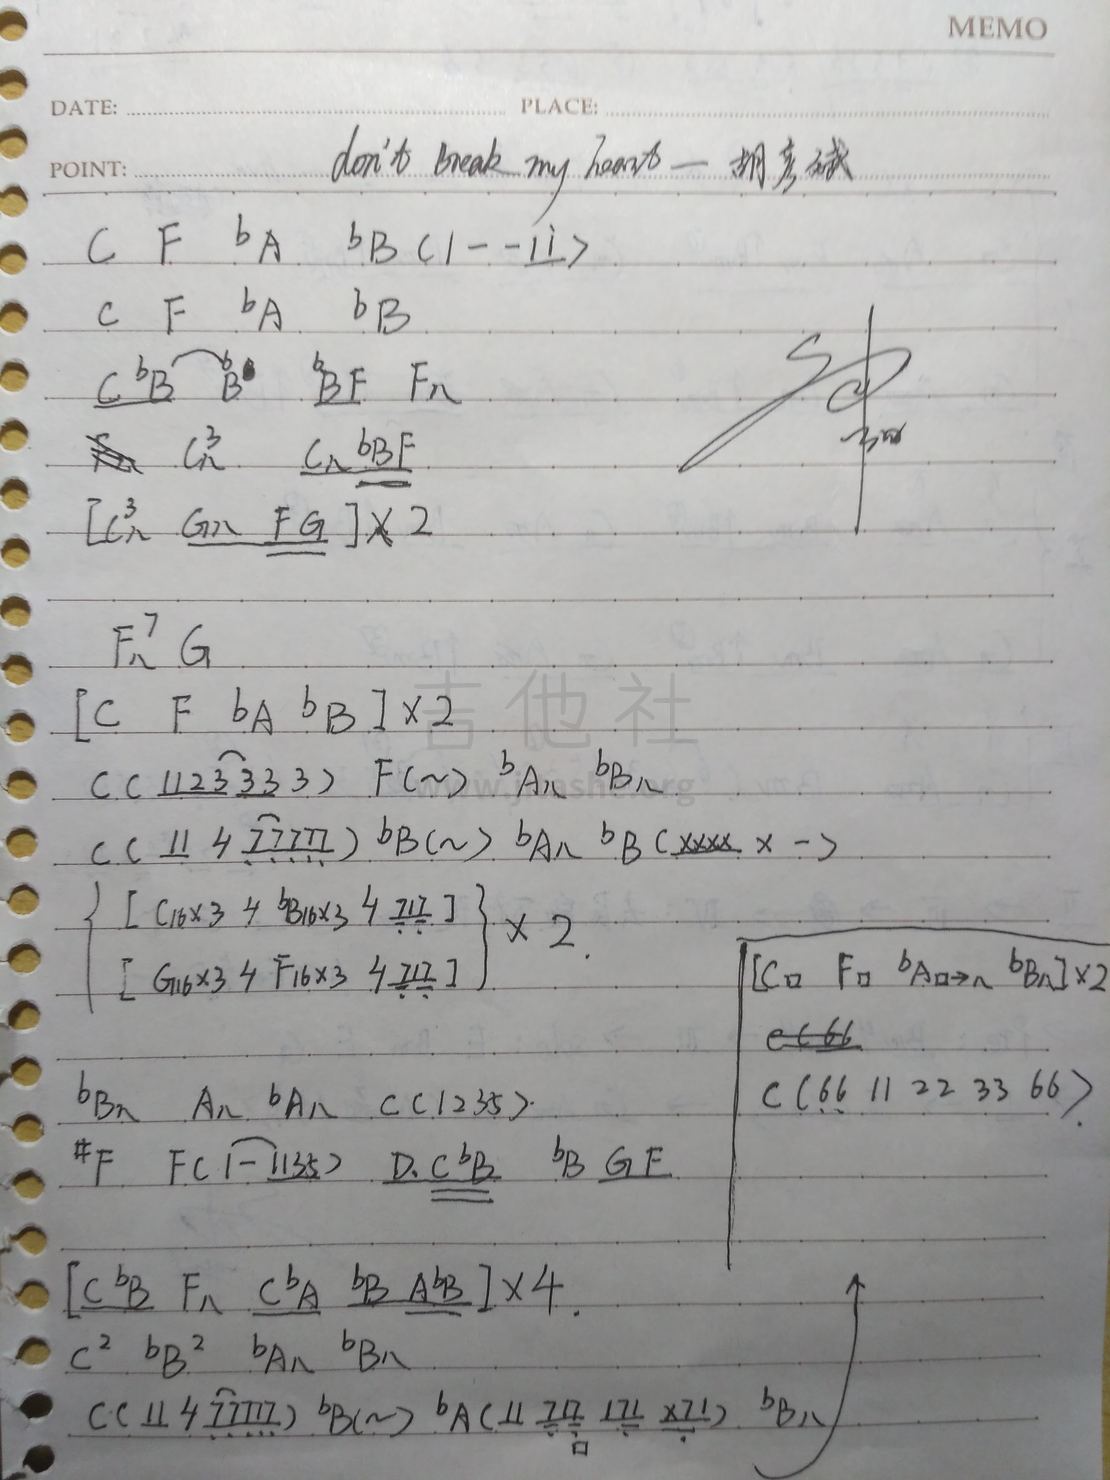 MEMO
DATE: PLACE:
POINT: don't Break my heart — 胡彦斌
C F bA bB (1 - - 1 i)
C F bA bB
C bB bB bB F F
C3 C bB F
[C3 G F G] × 2
F7 G
[C F bA bB] × 2
吉他社
C ( 1 1 2 3 3 3 3 ) F (~) bA bB
www.jitashe.org
C ( 1 1 4 7 7 7 7 7 ) bB (~) bA bB ( x x x x x - )
{ [ C16×3 4 bB16×3 4 7 1 7 ]
[ G16×3 4 F16×3 4 7 1 7 ] } × 2.
bB A bA C ( 1 2 3 5 ).
#F F ( 1 - 1 1 3 5 ) D. C bB bB G F
[C bB F C bA bB A bB] × 4.
C2 bB2 bA bB
C ( 1 1 4 7 7 7 7 7 ) bB (~) bA ( 1 1 7 1 7 1 7 1 x 7 1 ) bB
[C□ F□ bA□→ bB] ×2
C ( 66
C ( 66 11 22 33 66 )